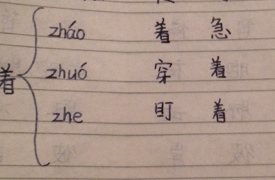 zháo 着急
zhuó 穿着
着
zhe 盯着